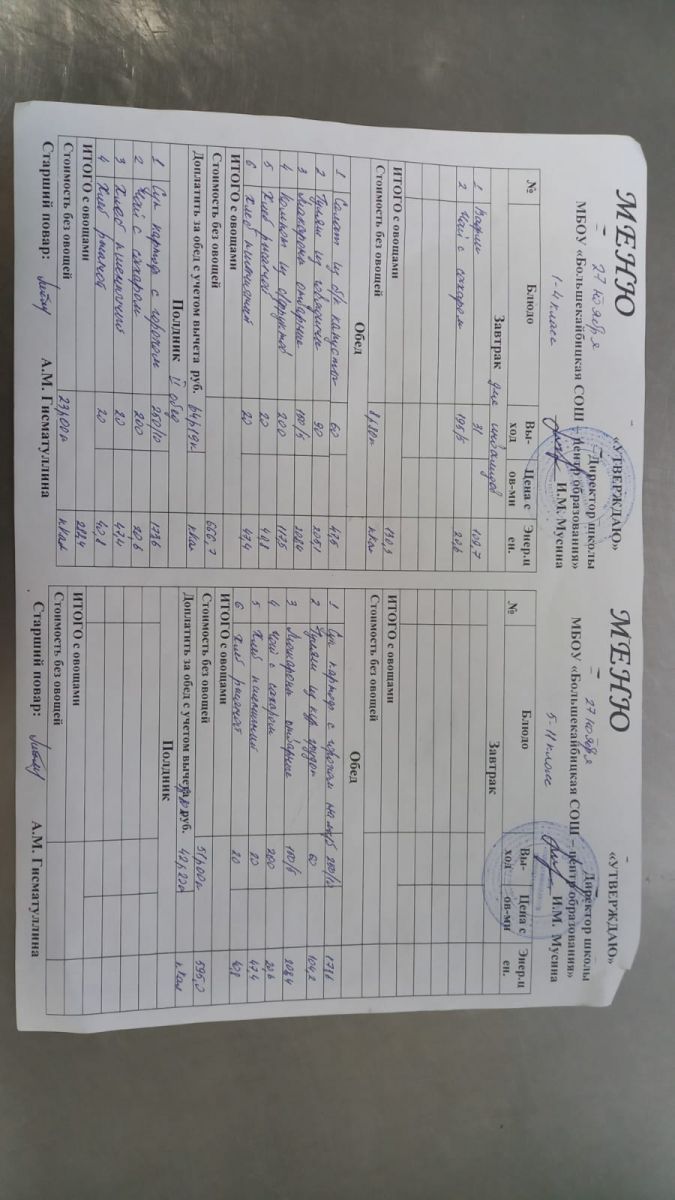 «УТВЕРЖДАЮ»
Директор школы
МБОУ «Большекайбицкая СОШ – центр образования»
И.М. Мусина
МЕНЮ
27 ноября
1-4 класс
№ Блюдо Вы-ход Цена с ов-ми Энер.ц ен.
Завтрак для инвалидов
1 Вафли 31 109,7
2 Чай с сахаром 195/5 20,6
ИТОГО с овощами 130,3
Стоимость без овощей 8р80к ккал
Обед
1 Салат из б/к капусты 60 47,5
2 Гуляш из говядины 90 205,1
3 Макароны отварные 180/5 208,4
4 Компот из сухофруктов 200 117,5
5 Хлеб ржаной 20 40,8
6 Хлеб пшеничный 20 47,4
ИТОГО с овощами
Стоимость без овощей 666,7
Доплатить за обед с учетом вычета руб. 64р19к ккал
Полдник II обед
1 Суп картоф с горохом 250/10 173,6
2 Чай с сахаром 200 20,6
3 Хлеб пшеничный 20 47,4
4 Хлеб ржаной 20 40,8
ИТОГО с овощами 282,4
Стоимость без овощей 23р00к ккал
Старший повар: А.М. Гисматуллина
«УТВЕРЖДАЮ»
Директор школы
МБОУ «Большекайбицкая СОШ – центр образования»
И.М. Мусина
МЕНЮ
27 ноября
5-11 класс
№ Блюдо Вы-ход Цена с ов-ми Энер.ц ен.
Завтрак
ИТОГО с овощами
Стоимость без овощей
Обед
1 Суп картоф с горохом на м/б 250/10 173,6
2 Гуляш из кур грудок 60 104,2
3 Макароны отварные 180/5 208,4
4 Чай с сахаром 200 20,6
5 Хлеб пшеничный 20 47,4
6 Хлеб ржаной 20 40,8
ИТОГО с овощами
Стоимость без овощей 51р00к 595,0
Доплатить за обед с учетом вычета руб. 42р20к ккал
Полдник
ИТОГО с овощами
Стоимость без овощей
Старший повар: А.М. Гисматуллина